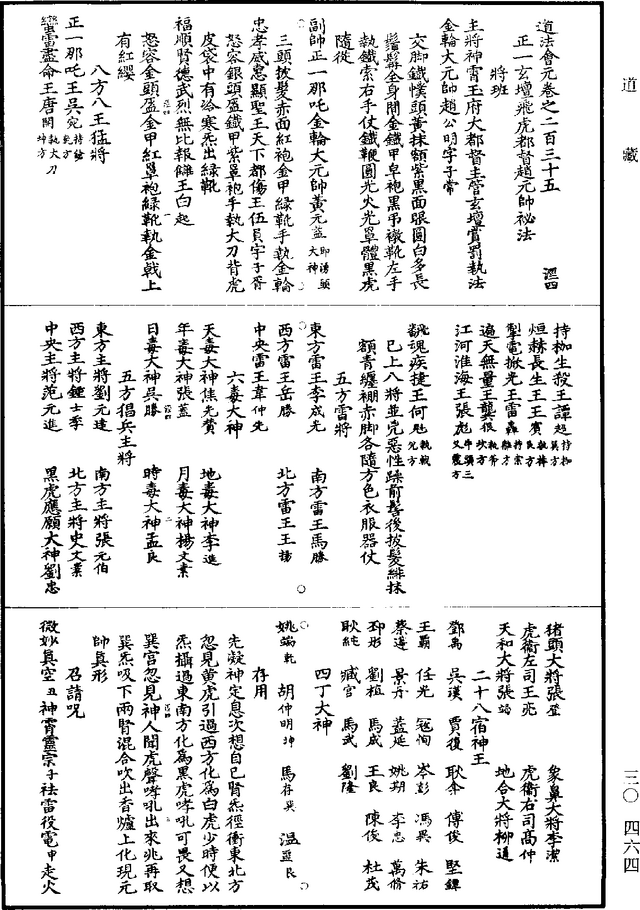 道藏
道法會元卷之二百三十五
涇四
正一玄壇飛虎都督趙元帥祕法
將班
主將神霄玉府大都督主管玄壇賞罰執法
金輪大元帥趙公明字子常
交脚鐵幞頭黃抹額紫黑面眼圓白多長
鬚髯全身間金鐵甲皁袍黑弔襪靴左手
執鐵索右手仗鐵鞭圓光火光罩體黑虎
隨從
副帥正一那吒金輪大元帥黃元益
三頭披髮赤面紅袍金甲綠靴手執金輪
忠孝威惠顯聖王天下都傷王伍員字子胥
怒容銀頭盔鐵甲紫罩袍手執大刀背虎
皮袋中有冷寒炁出綠靴
福順賢德武烈無比報讎王白起
怒容金頭盔金甲紅罩袍綠靴執金戟上
有紅纓
八方八王猛將
正一那吒王吳宛
蠻雷盡命王唐閔 執大刀 坤方
持枷生殺王譚超 持枷 艮方
烜赫長生王王賓 執棒
掣電掀光王雷轟
遍天無量王龔俍 執斧 坎方
江河淮海王張彪
翻魂疾捷王何
已上八將並兇惡性躁前髻後披髮緋抹
額青纏繃赤脚各隨方色衣服器仗
五方雷將
東方雷王李成光 南方雷王馬勝
西方雷王岳勝 北方雷王王揚
中央雷王韋仲先
六毒大神
天毒大神焦光贊 地毒大神李進
年毒大神張蓋 月毒大神楊文素
日毒大神吳勝 時毒大神孟良
五方猖兵主將
東方主將劉元達 南方主將張元伯
西方主將鍾士季 北方主將史文業
中央主將范元進 黑虎應願大神劉忠
猪頭大將張登 象鼻大將李潔
虎衛左司王兆 虎衛右司高仲
天和大將張 地合大將柳通
二十八宿神王
鄧禹 吳漢 賈復 耿弇 傅俊 堅鐔
王霸 任光 寇恂 岑彭 馮異 朱祐
蔡遵 景丹 蓋延 姚期 李忠 萬脩
邳彤 劉植 馬成 王良 陳俊 杜茂
耿純 臧宮 馬武 劉隆
四丁大神
姚端 乾 胡仲明 坤 馬存 巽 溫 艮
存用
先凝神定息次想自己腎炁徑衝東北方
忽見黃虎引過西方化為白虎少時便以
炁攝過東南方化為黑虎哮吼可畏又想
巽宮忽見神人聞虎聲哮吼出來兆再取
巽炁吸下兩腎混合吹出香爐上化現元
帥真形
召請呪
微妙真空 丑 神霄靈宗 子 祛雷役電 甲 走火
三〇 四六四